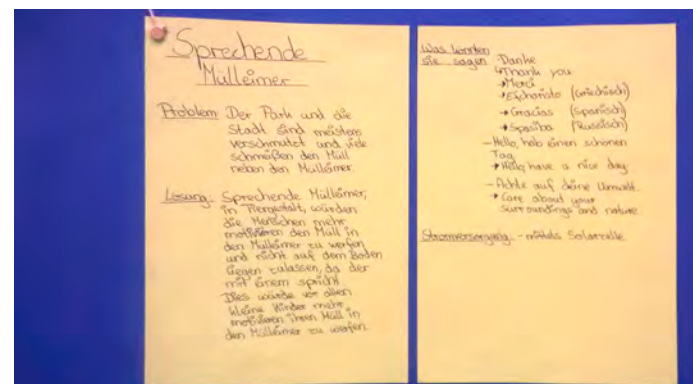 Sprechende
Mülleimer
Problem: Der Park und die
Stadt sind meistens
verschmutzt und viele
schmeißen den Müll
neben den Mülleimer.
Lösung: Sprechende Mülleimer,
in Tiergestalt, würden
die Menschen mehr
motivieren den Müll in
den Mülleimer zu werfen
und nicht auf dem Boden
liegen zulassen, da der
mit einem spricht.
Dies würde vor allen
kleine Kinder mehr
motivieren ihren Müll in
den Mülleimer zu werfen.
Was könnten
sie sagen: Danke
↳ Thank you
→ Merci
→ Efcharisto (Griechisch)
→ Gracias (Spanisch)
→ Spasiba (Russisch)
- Hello, hab einen schönen
Tag
→ Hello, have a nice day
- Achte auf deine Umwelt.
→ Care about your
surroundings and nature
Stromversorgung: - mittels Solarzelle